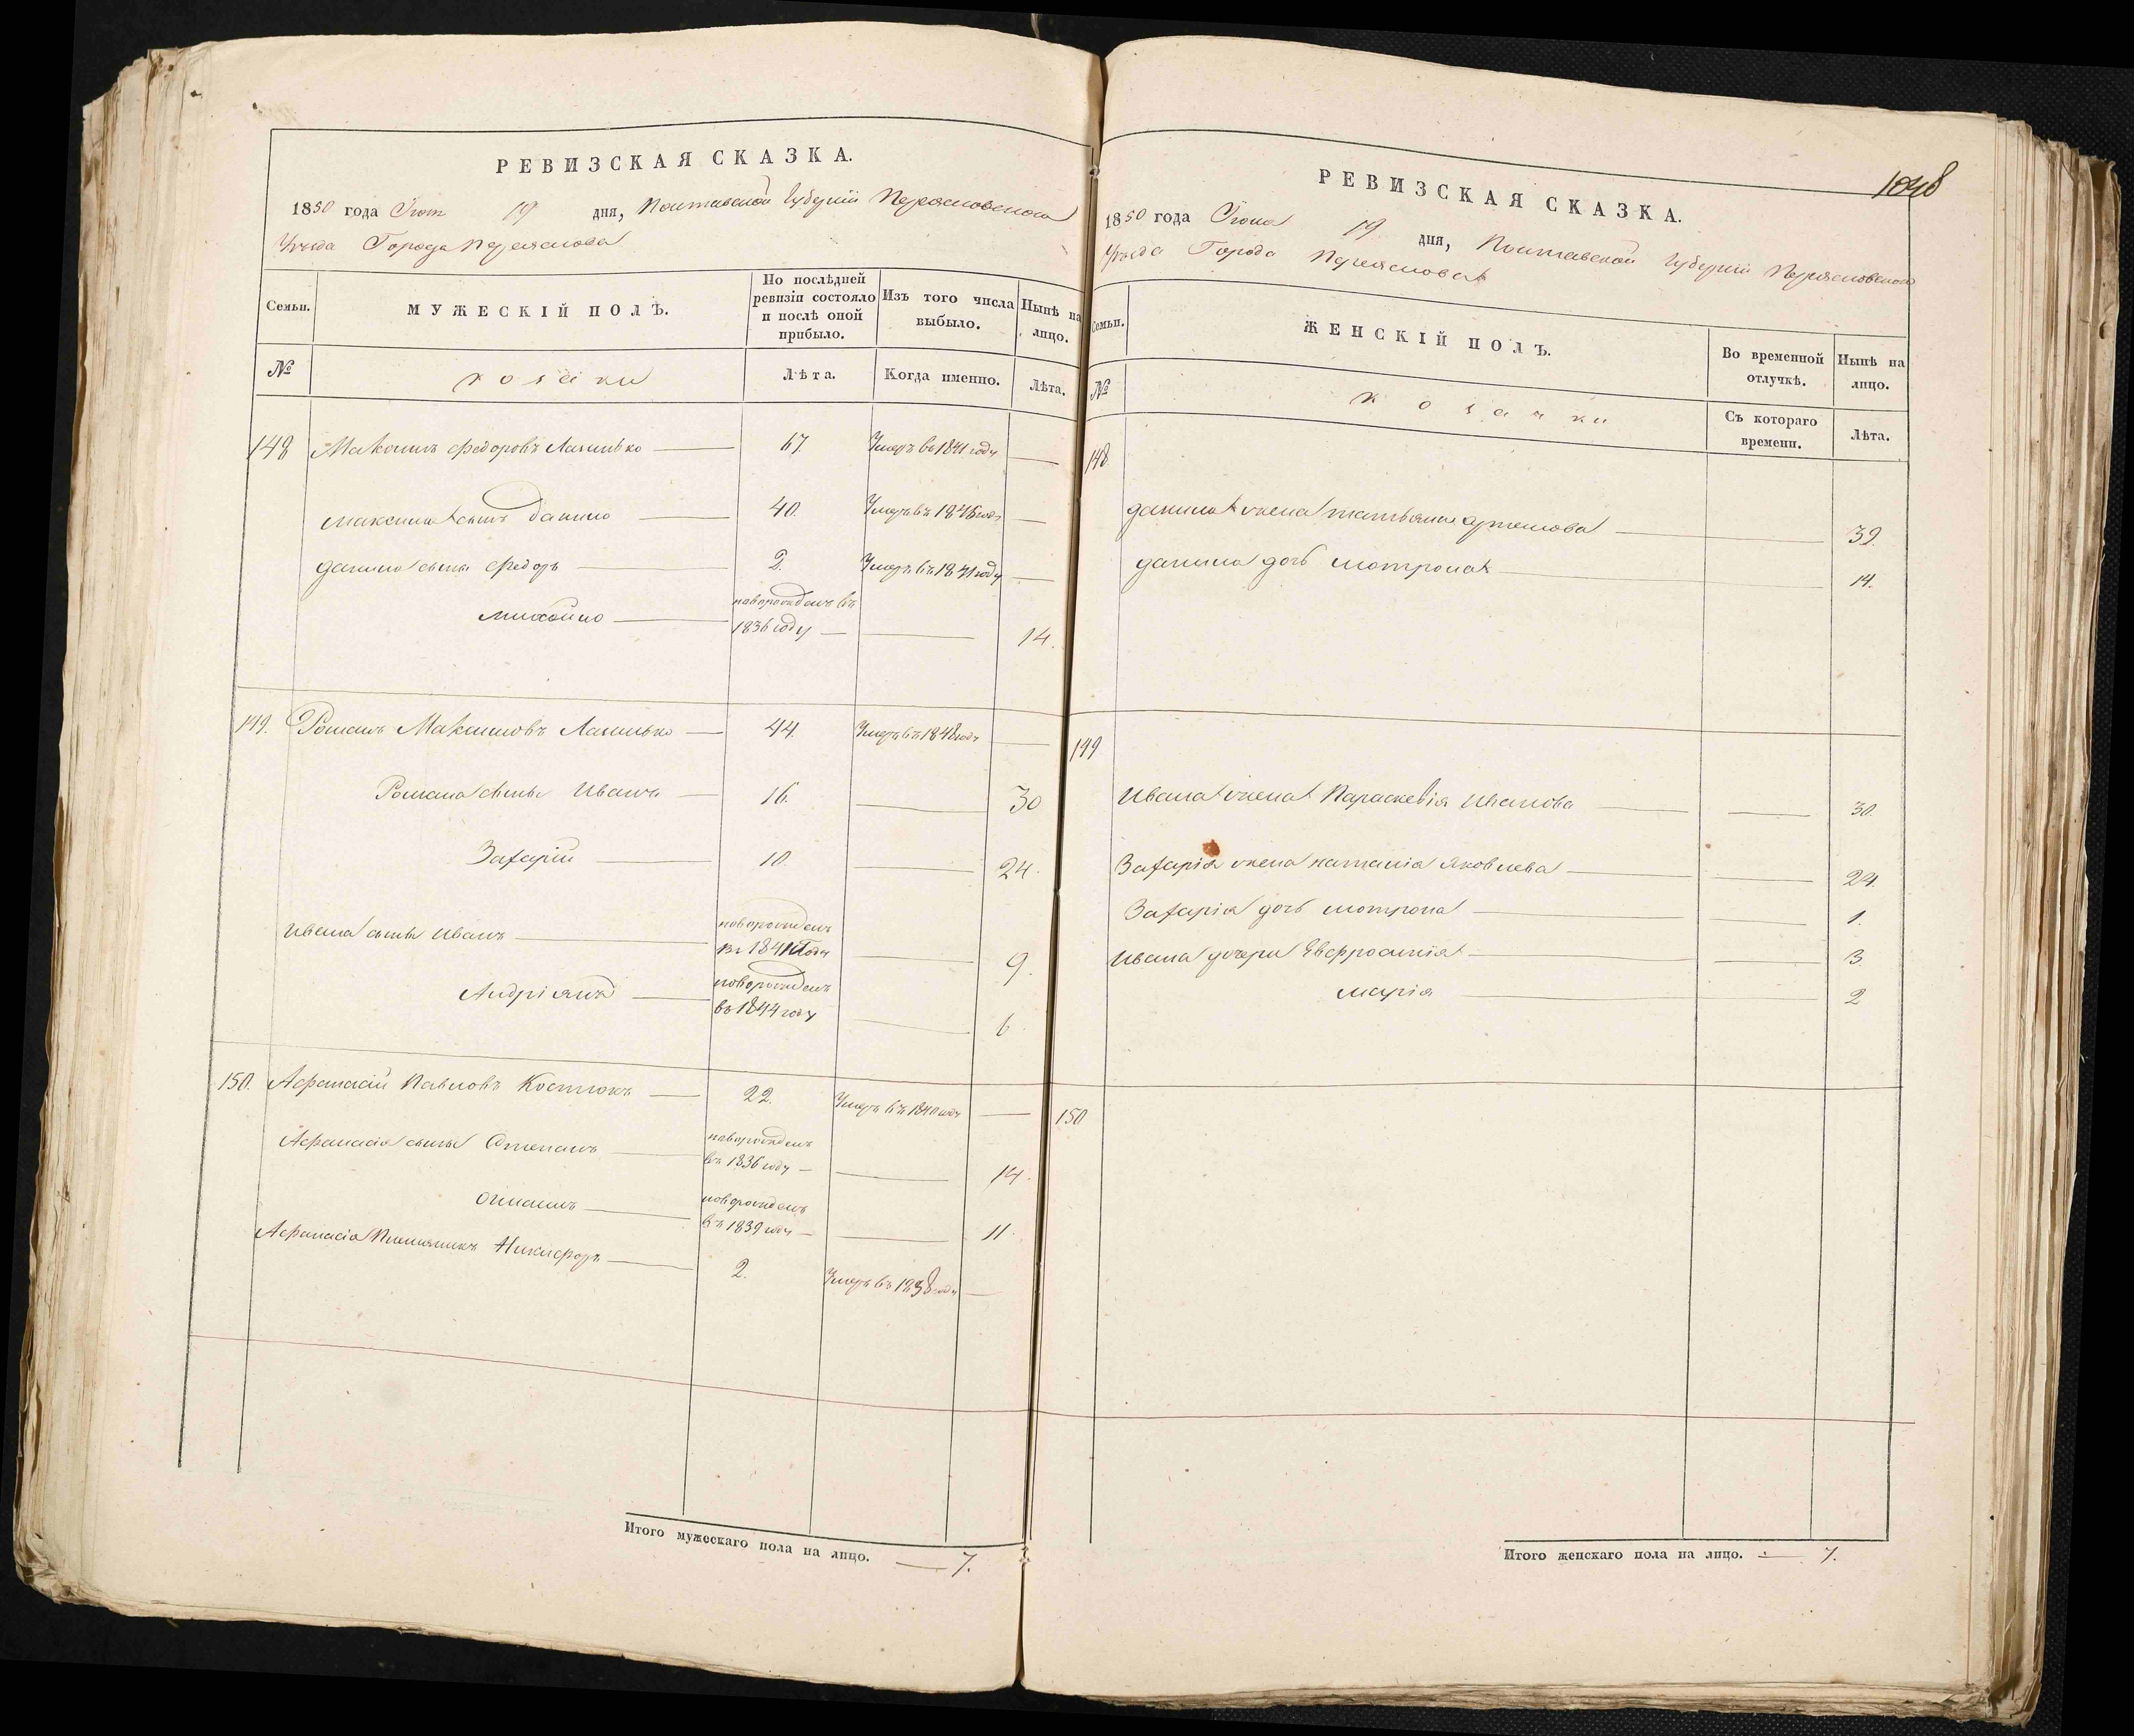 РЕВИЗСКАЯ СКАЗКА.
1850 года 19 дня, Полтавской Губерніи Переясловского
Уѣзда Города Переяслова
Семьи. МУЖЕСКІЙ ПОЛЪ. По послѣдней ревизіи состояло и послѣ оной прибыло. Изъ того числа выбыло. Нынѣ на лицо.
№ козаки Лѣта. Когда именно. Лѣта.
148 Максимъ Федоровъ 67. Умеръ въ 1841 году
Максима сынъ Данило 40. Умеръ въ 1846 году
Данила сынъ Федоръ 2. Умеръ въ 1841 году
Михайло новорожденъ въ
1836 году 14.
149. Романъ Максимовъ 44. Умеръ въ 1848 году
Романа сыны Иванъ 16. 30
Захарій 10. 24.
Ивана сыны Иванъ новорожденъ
въ 1841 году 9.
Андріянъ новорожденъ
въ 1844 году 6.
150. Афанасій Павловъ Костюкъ 22. Умеръ въ 1840 году
Афанасія сыны Степанъ новорожденъ
въ 1836 году 14.
новорожденъ
въ 1839 году 11.
Афанасія Племянникъ Никифоръ 2. Умеръ въ 1838 году
Итого мужескаго пола на лицо. 7.
1048
РЕВИЗСКАЯ СКАЗКА.
1850 года Іюна 19 дня, Полтавской Губерніи Переясловского
Уѣзда Города Переяслова
Семьи. ЖЕНСКІЙ ПОЛЪ. Во временной отлучкѣ. Нынѣ на лицо.
№ козачки Съ котораго времени. Лѣта.
148
Данила жена Татьяна Артемова 39.
Данила дочь Мотрона 14.
149
Ивана жена Параскевія Иванова 30.
Захарія жена Наталія Яковлева 24.
Захарія дочь Мотрона 1.
Ивана дочери Евфросинія 3.
Марія 2
150
Итого женскаго пола на лицо. 7.